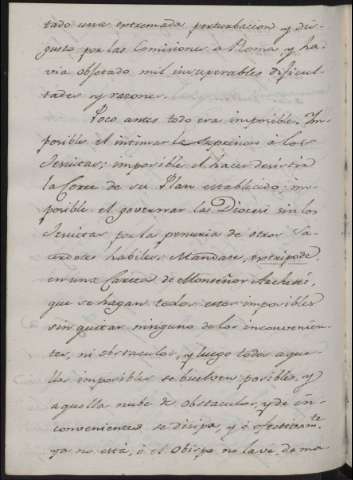 tado una extremada perturbacion y dis-
gusto por las Comisiones a Roma, y ha-
via obstado mil insuperables dificul-
tades y razones.
Poco antes todo era imposible. Im-
posible el intimar la supresion á los
Jesuitas; imposible el hacer desistir á
la Corte de su Plan establecido; im-
posible el governar las Diocesis sin los
Jesuitas por la penuria de otros Sa-
cerdotes habiles. Mandase,
en una Carta de Monseñor
que se hagan todos estos imposibles
sin quitar ninguno de los inconvenien-
tes, ni obstaculos, y luego todos aque-
llos imposibles se buelven posibles, y
aquella nube de obstaculos, y de in-
convenientes se disipa, y ó efectivam.te
ya no está, ó el Obispo no la vé, de ma